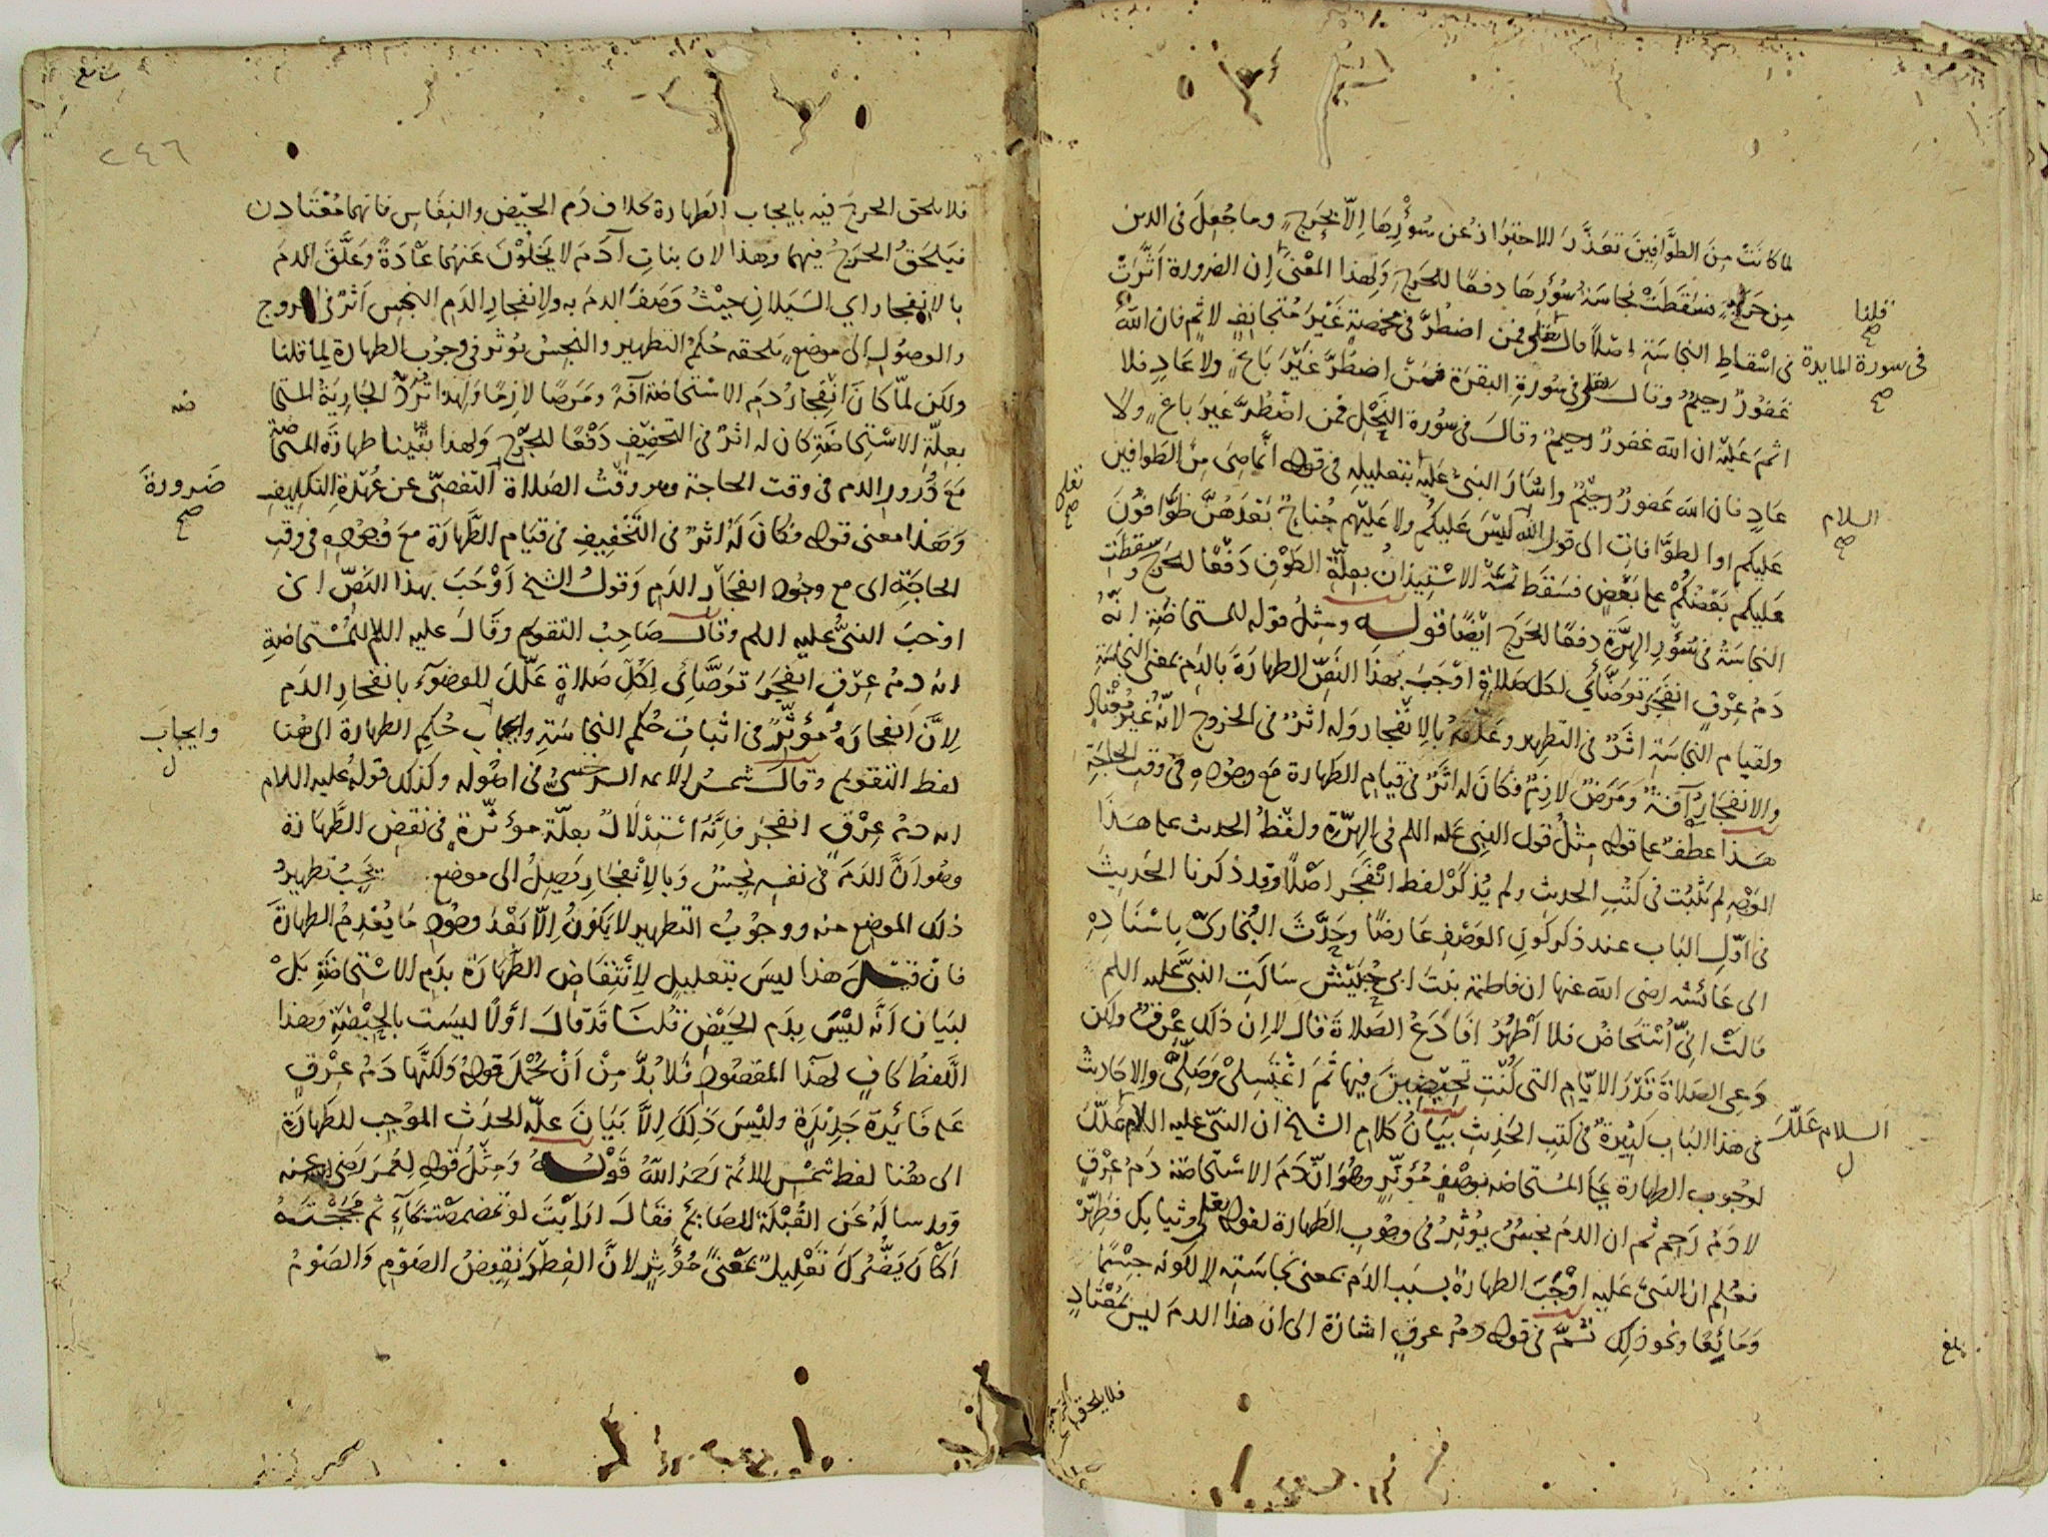 لما كانت من الطوافين تعذر الاحتراز عن سؤرها الا بحرج وما جعل فى الدين
من حرج فسقطت نجاسة سؤرها دفعا للحرج ولهذا المعنى قلنا ان الضرورة اثرت
فى اسقاط النجاسة اصلا قال تعالى فى سورة المايدة فمن اضطر فى مخمصة غير متجانف لاثم فان الله
غفور رحيم وقال تعالى فى سورة البقرة فمن اضطر غير باغ ولا عاد فلا
اثم عليه ان الله غفور رحيم وقال فى سورة النحل فمن اضطر غير باغ ولا
عاد فان الله غفور رحيم واشار النبى عليه السلام بتعليله فى قوله انما هى من الطوافين
عليكم او الطوافات الى قول الله تعالى ليس عليكم ولا عليهم جناح بعدهن طوافون
عليكم بعضكم على بعض فسقط ثمة الاستيذان بعلة الطوف دفعا للحرج وسقطت
النجاسة فى سؤر الهرة دفعا للحرج ايضا قوله ومثل قوله للمستحاضة انه
دم عرق انفجر توضائى لكل صلاة اوجب بهذا النص الطهارة بالدم بمعنى النجاسة
ولقيام النجاسة اثر فى التطهير وعلقه بالانفجار وله اثر فى الخروج لانه غير معتاد
والانفجار آفة ومرض لازم فكان له اثر فى قيام الطهارة مع وجوده فى وقت الحاجة
هذا عطف على قوله مثل قول النبى عليه السلم فى الهرة ولفظ الحديث على هذا
الوجه لم يثبت فى كتب الحديث ولم يذكر لفظ انفجر اصلا وقد ذكرنا الحديث
فى اول الباب عند ذكر كون الوصف عارضا وحدث البخارى باسناده
الى عائشة رضى الله عنها ان فاطمة بنت ابى حبيش سالت النبى عليه السلم
قالت انى استحاض فلا اطهر افادع الصلاة فقال لا ان ذلك عرق ولكن
دعى الصلاة قدر الايام التى كنت تحيضين فيها ثم اغتسلى وصلى والاحاديث
فى هذا الباب كثيرة فى كتب الحديث بيان كلام الشيخ ان النبى عليه السلام علل
لوجوب الطهارة على المستحاضه بوصف مؤثر وهو ان دم الاستحاضة دم عرق
لا دم رحم ثم ان الدم نجس يؤثر فى وجوب الطهارة لقوله تعالى وثيابك فطهر
فعلم ان النبى عليه السلام اوجب الطهارة بسبب الدم بمعنى نجاسته لا لكونه جسما
ومائعا ونحو ذلك ثم فى قوله دم عرق اشارة الى ان هذا الدم ليس بمعتاد
بلغ
فلا يلحق الحرج
٢٤٦
فلا يلحق الحرج فيه بايجاب الطهارة بخلاف دم الحيض والنفاس فانهما معتادان
فيلحق الحرج فيهما وهذا لان بنات آدم لا يخلون عنهما عادة وعلق الدم
بالانفجار اي السيلان حيث وصف الدم به ولانفجار الدم النجس اثر فى الخروج
والوصول الى موضع يلحقه حكم التطهير والنجس يؤثر فى وجوب الطهارة لما قلنا
ولكن لما كان انفجار دم الاستحاضة آفة ومرضا لازما ولهذا ترد الجارية المشتراة
بعلة الاستحاضة كان له اثر فى التخفيف دفعا للحرج ولهذا بقينا طهارة المستحاضة
مع درور الدم فى وقت الحاجة وهو وقت الصلاة ضرورة التفصى عن عهدة التكليف
وهذا معنى قوله فكان له اثر فى التخفيف فى قيام الطهارة مع وجوده فى وقت
الحاجة اى مع وجود انفجار الدم وقول الشيخ اوجب بهذا النص اى
اوجب النبى عليه السلم وقال صاحب التقويم وقال عليه السلم للمستحاضة
انه دم عرق انفجر توضائى لكل صلاة علل للوضوء بانفجار الدم
لان انفجاره مؤثر فى اثبات حكم النجاسة وايجاب حكم الطهارة الى هنا
لفظ التقويم وقال شمس الائمه السرخسى فى اصوله وكذلك قوله عليه السلام
انه دم عرق انفجر فانه استدلال بعلة مؤثرة فى نقض الطهارة
وهو ان الدم فى نفسه نجس وبالانفجار يصل الى موضع يجب تطهير
ذلك الموضع منه ووجوب التطهير لا يكون الا بعد وجود ما يعدم الطهارة
فان قيل هذا ليس بتعليل لانتقاض الطهارة بدم الاستحاضة بل
لبيان انه ليس بدم الحيض قلنا قد قال اولا ليست بالحيضة وهذا
اللفظ كاف لهذا المقصود فلا بد من ان يحمل قوله ولكنها دم عرق
على فائدة جديدة وليس ذلك الا بيان علة الحدث الموجب للطهارة
الى هنا لفظ شمس الائمة رحمه الله قوله ومثل قوله لعمر رضى الله عنه
وقد ساله عن القبلة للصائم فقال ارايت لو تمضمضت بماء ثم مججته
اكان يضرك تعليل بمعنى مؤثر لان الفطر نقيض الصوم والصوم